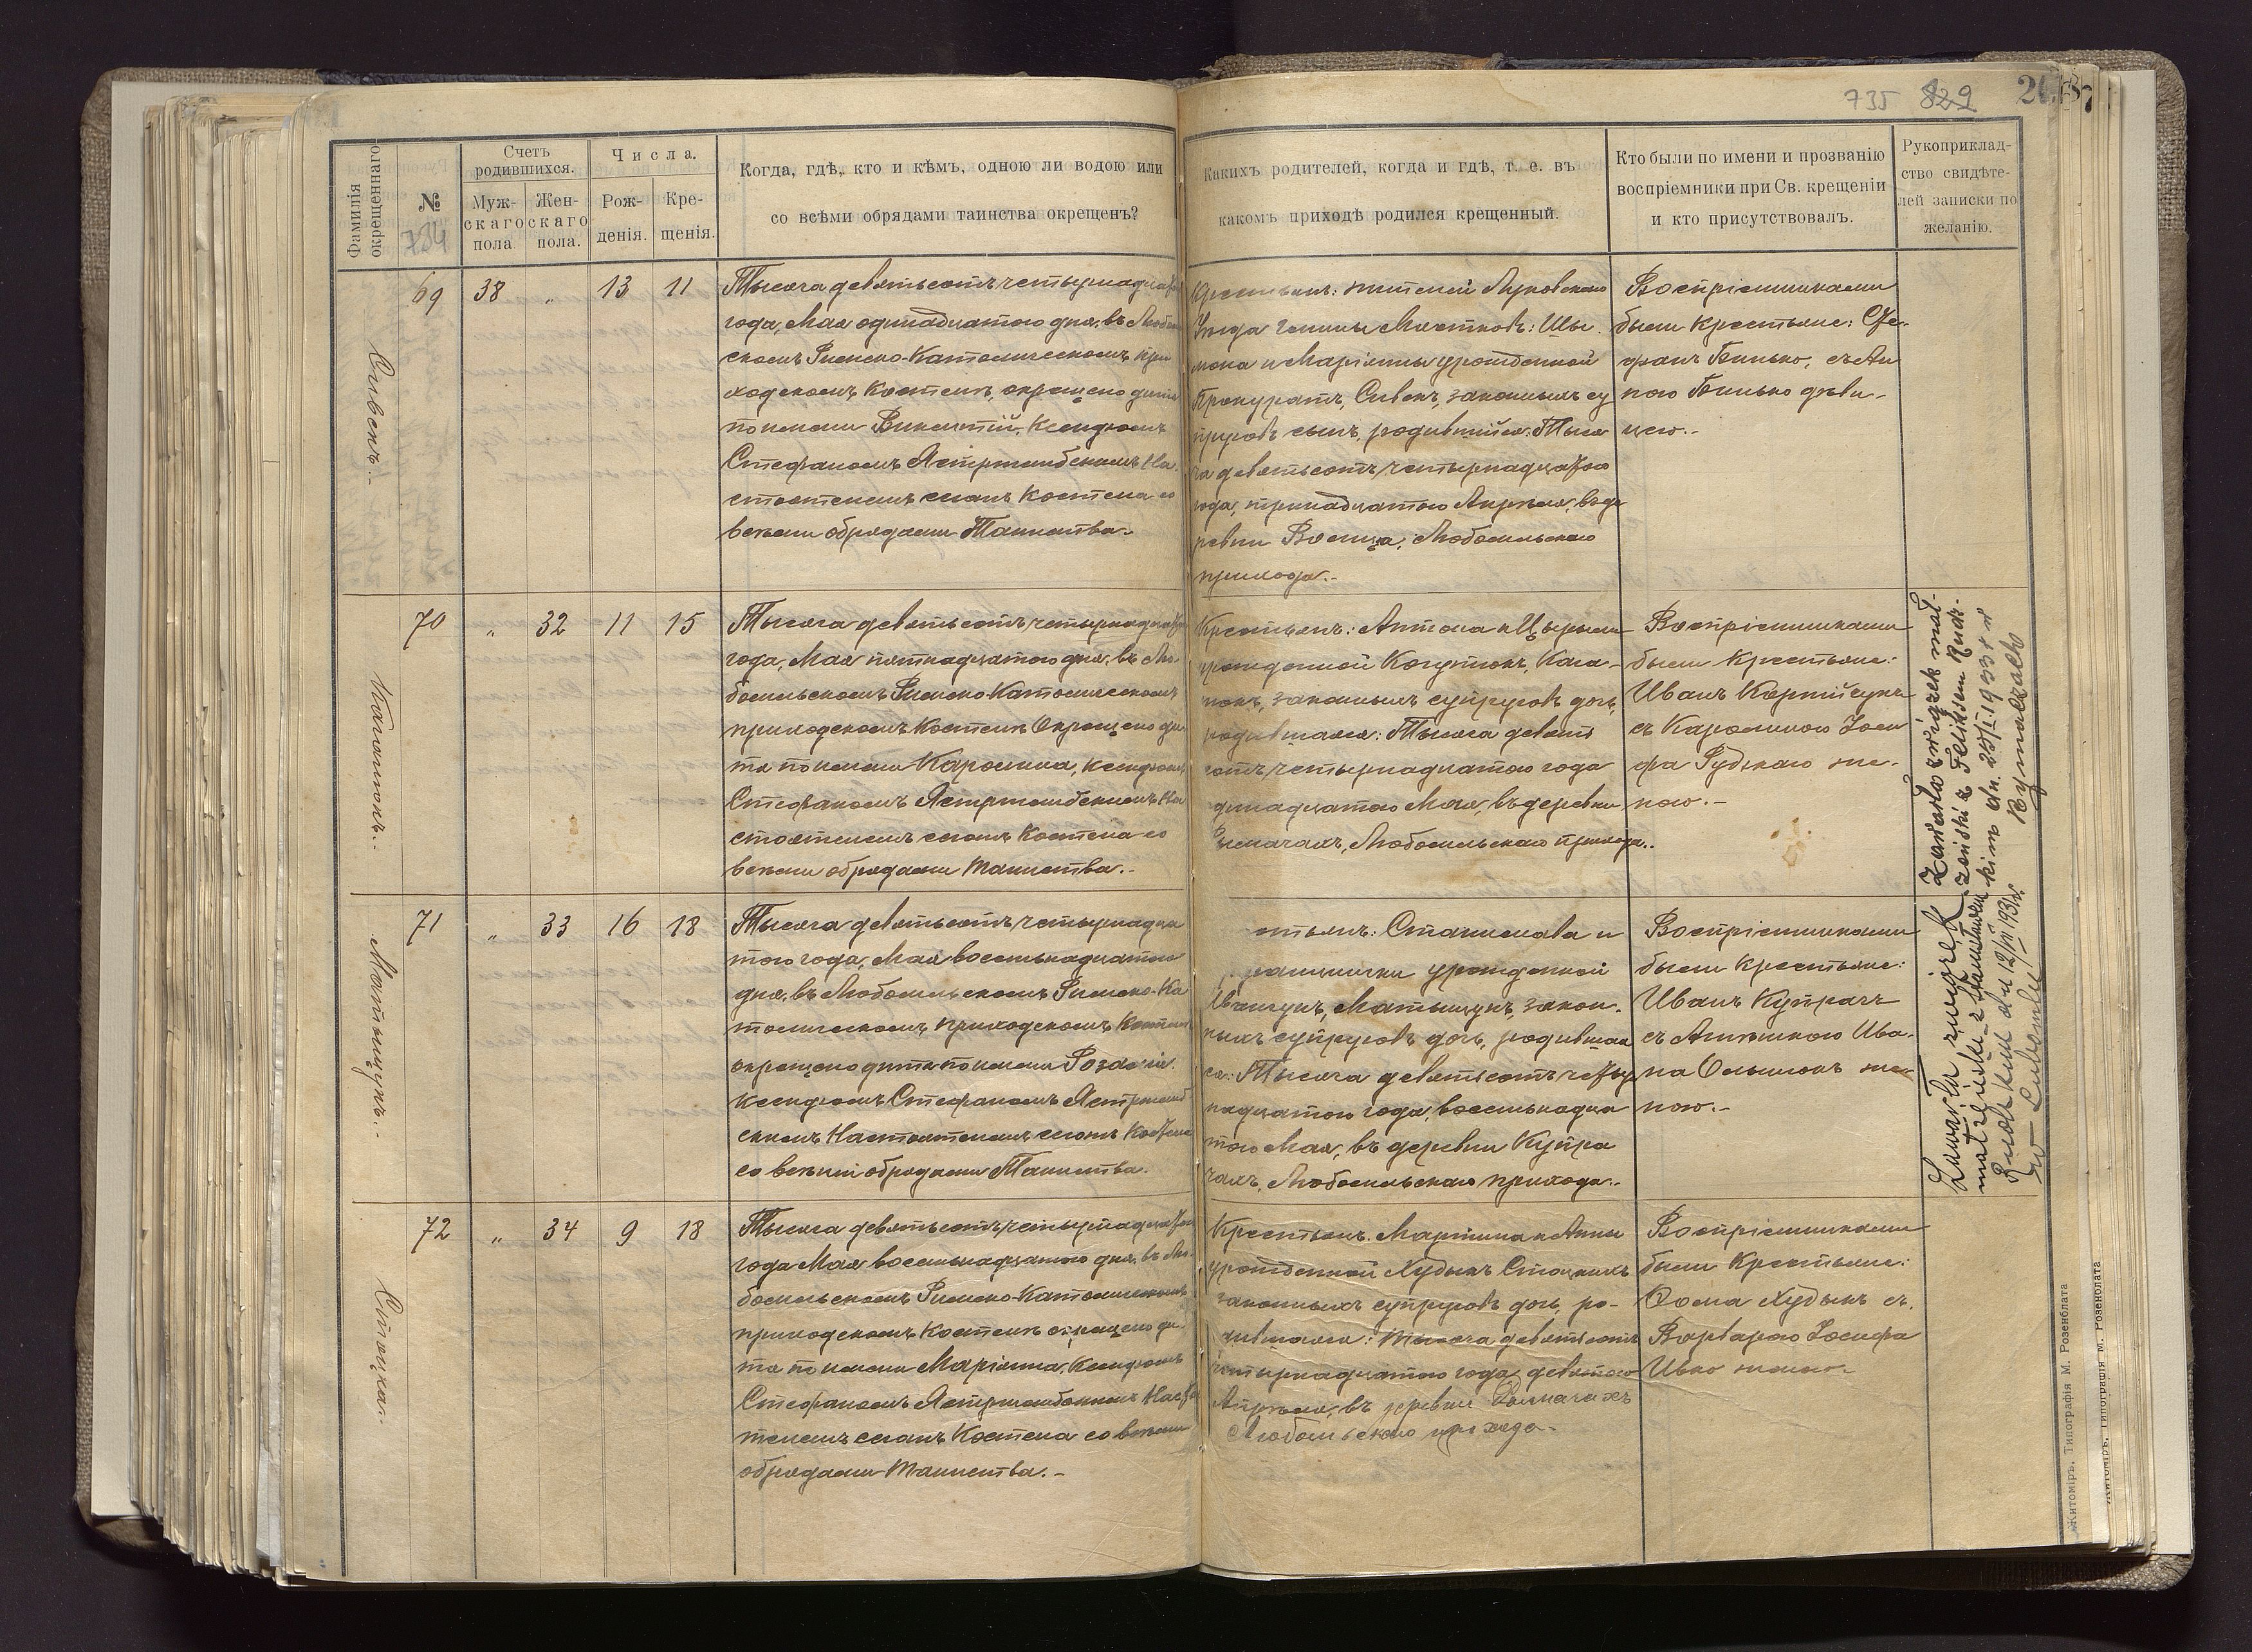 735 829
Фамилія окрещеннаго
№
784
Счетъ родившихся.
Муж-
скаго
пола
Жен-
скаго
пола.
Числа.
Рож-
денія.
Кре-
щенія.
Когда, гдѣ, кто и кѣмъ, одною ли водою или
со всѣми обрядами таинства окрещенъ?
Какихъ родителей, когда и гдѣ, т. е. въ
какомъ приходѣ родился крещенный.
Кто были по имени и прозванію
воспріемники при Св. крещеніи
и кто присутствовалъ.
Рукоприклад-
ство свидѣте-
лей записки по
желанію.
Сивекъ.
69 38 „ 13 11
Тысяча девятьсотъ четырнадцатаго
года, Мая одинадцатаго дня, въ Любом
скомъ Римско-Католическомъ при
ходскомъ Костелѣ, окрещено дитя
по имени Викентій, Ксендзомъ
Стефаномъ Ястржембскимъ На-
стоятелемъ сего Костела со
всѣми обрядами Таинства.
Крестьянъ: жителей Луковскаго
Уѣзда гмины Мястковъ: Шы-
мона и Маріанны урожденной
Прокуратъ, Сивекъ, законныхъ су
пруговъ сынъ, родившійся: Тыся
ча девятьсотъ четырнадцатаго
года, тринадцатаго Апрѣля, въ де
ревни Волица, Любомльскаго
прихода.
Воспріемниками
были Крестьяне: Сте-
фанъ Бинько, съ Ан
ною Бинько дѣви-
цею.
70 „ 32 11 15
Тысяча девятьсотъ четырнадцатаго
года, Мая пятнадцатаго дня, въ Лю-
бомльскомъ Римско Католическомъ
приходскомъ Костелѣ Окрещено ди-
тя по имени Каролина, Ксендзомъ
Стефаномъ Ястржембскимъ На
стоятелемъ сего Костела со
всѣми обрядами таинства.
Крестьянъ: Антона и
урожденной
законныхъ супруговъ дочь,
родившаяся: Тысяча девять
сотъ четырнадцатаго года
динадцатаго Мая, въ деревни
Рымачахъ, Любомльскаго прихода.
Воспріемниками
были Крестьяне:
Иванъ
съ Каролиною Іоси
фа Рудскаго же-
ною.
Zawarła związek mał-
żeński z Feliksem Rudz-
kim dn. 25/I. 1933 r. w
Rymaczach
Матыщукъ.
71 „ 33 16 18
Тысяча девятьсотъ четырнадца
таго года, Мая восемьнадцатаго
дня, въ Любомльскомъ Римско-Ка
толическомъ приходскомъ Костелѣ
окрещено дитя по имени Розалія.
Ксендзомъ Стефаномъ Ястржемб
скимъ Настоятелемъ сего Костела
со всѣми обрядами Таинства.
стьянъ: Станислава и
урожденной
Матыщукъ, закон-
ныхъ супруговъ дочь, родившая
ся: Тысяча девятьсотъ четыр
надцатаго года, восемьнадца
таго Мая, въ деревни Купра
чахъ, Любомльскаго прихода.
Воспріемниками
были Крестьяне:
Иванъ Купрачъ
съ Ива-
на же-
ною.
Zawarła związek
małżeński z Stanisławem
Rudzkim dn 12/VI 1931 r.
w Lubomlu
Стоцка.
72 „ 34 9 18
Тысяча девятьсотъ четырнадцатаго
года Мая восемьнадцатаго дня, въ Лю-
бомльскомъ Римско-Католическомъ
приходскомъ Костелѣ окрещено ди-
тя по имени Маріанна, Ксендзомъ
Стефаномъ Ястржембскимъ Настоя
телемъ сего Костела со всѣми
обрядами Таинства.
Крестьянъ: Мартина и Анны
урожденной Худыкъ Стоцкихъ
законныхъ супруговъ дочь, ро-
дившаяся: тысяча девятьсотъ
четырнадцатаго года девятаго
Апрѣля, въ деревни Рымачахъ
Любомльскаго прихода.
Воспріемниками
были Крестьяне:
Фома Худыкъ съ
Варварою Іосифа
Ивко женою.
Житоміръ, Типографія М. Розенблата
Житоміръ, Типографія М. Розенблата